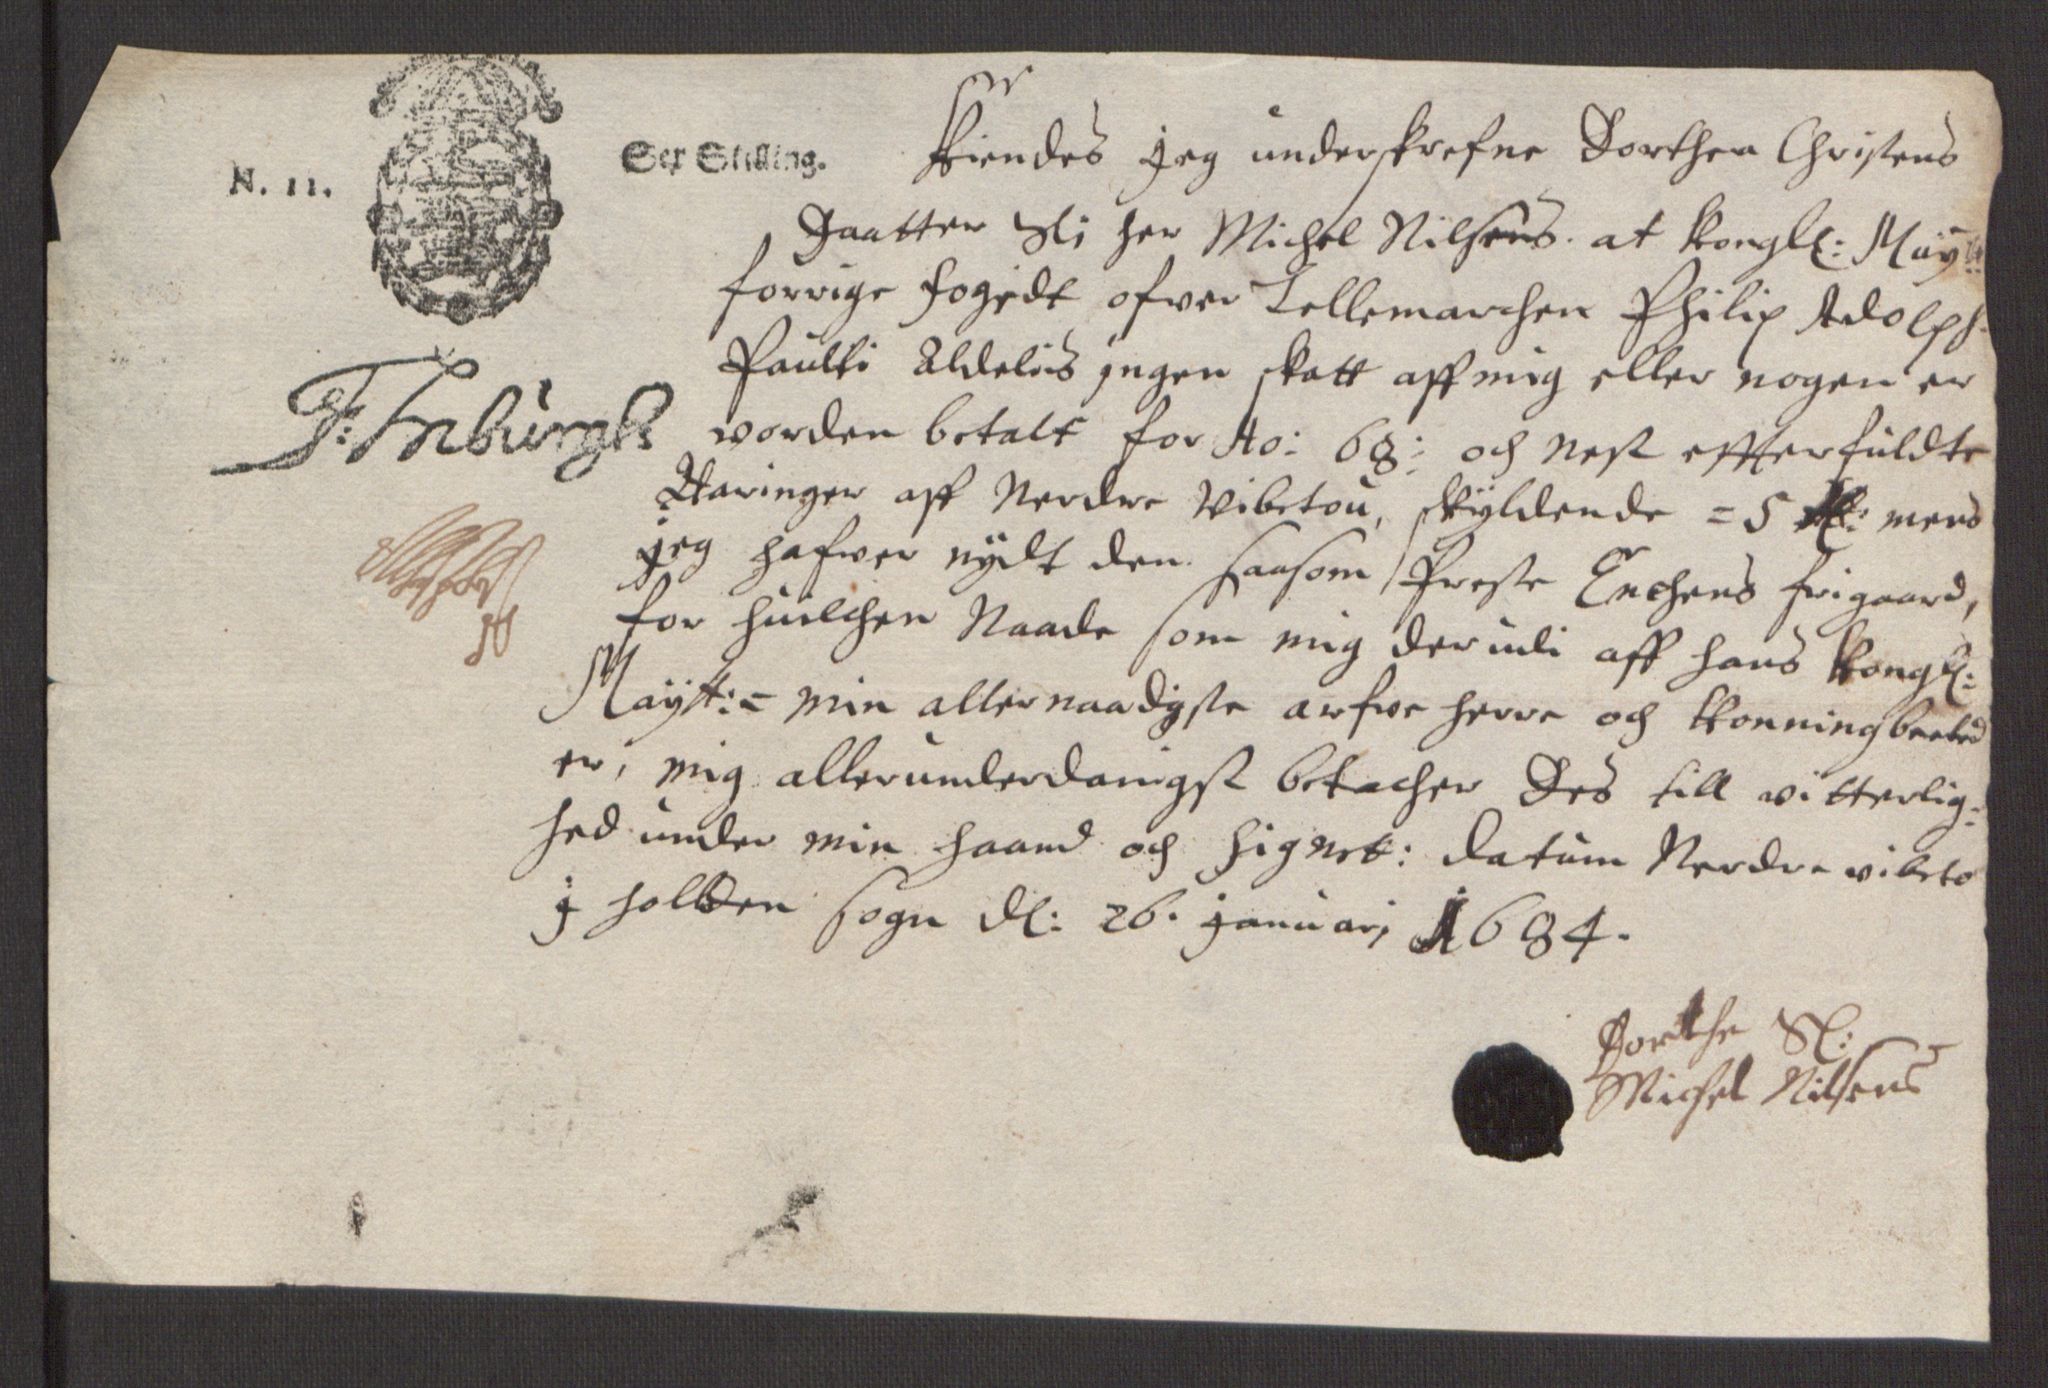 N. 11.
Sex Skilling.
Kiendes jeg underskrefne Dorthea Christens
Daatter Sl: her Michel Nilsens. at Kongl: Maÿ:tt
forrige fogedt ofver Tellemarchen Philip Adolph
Paulli Aldelis jngen skatt aff mig eller nogen er
worden betalt for Ao: 68: och nest effterfuldte
Aaringer aff Nerdre Vibetou, skÿldende = 5 mens
jeg hafver nÿdt den saasom Preste Enchens frigaard,
for huilchen Naade som mig derudi aff hans Kongl:
Maÿtt: = min allernaadigste arfve herre och Konning beteed
er, mig allerunderdanigst betacher Des till vitterlig-
hed under min haand och Signet: Datum Nerdre vibeto
j holden sogn dl: 26. januarj 1684.
Dorthe Sl:
Michel Nilsens